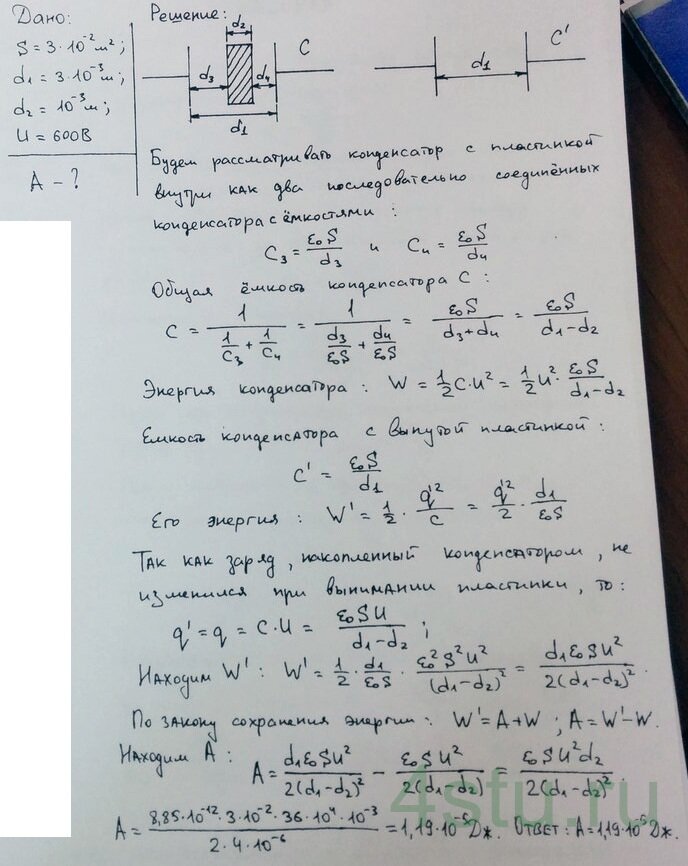 Дано:
S = 3·10⁻² м²;
d₁ = 3·10⁻³ м;
d₂ = 10⁻³ м;
U = 600В
A - ?
Решение:
d₂
C
d₃
d₄
d₁
C'
d₁
Будем рассматривать конденсатор с пластинкой
внутри как два последовательно соединённых
конденсатора с ёмкостями :
C₃ = ε₀S/d₃ и C₄ = ε₀S/d₄
Общая ёмкость конденсатора C :
C = 1/(1/C₃ + 1/C₄) = 1/(d₃/ε₀S + d₄/ε₀S) = ε₀S/(d₃+d₄) = ε₀S/(d₁-d₂)
Энергия конденсатора : W = 1/2 C·U² = 1/2 U² · ε₀S/(d₁-d₂)
Емкость конденсатора с вынутой пластинкой :
C' = ε₀S/d₁
Его энергия : W' = 1/2 · q'²/C = q'²/2 · d₁/ε₀S
Так как заряд, накопленный конденсатором, не
изменился при вынимании пластинки, то :
q' = q = C·U = ε₀SU/(d₁-d₂) ;
Находим W' : W' = 1/2 · d₁/ε₀S · ε₀²S²U²/(d₁-d₂)² = d₁ε₀SU²/2(d₁-d₂)² .
По закону сохранения энергии : W' = A + W ; A = W' - W.
Находим A :
A = d₁ε₀SU²/2(d₁-d₂)² - ε₀SU²/2(d₁-d₂) = ε₀SU²d₂/2(d₁-d₂)² .
A = 8,85·10⁻¹²·3·10⁻²·36·10⁴·10⁻³/2·4·10⁻⁶ = 1,19·10⁻⁵ Дж. Ответ : A = 1,19·10⁻⁵ Дж.
4stu.ru